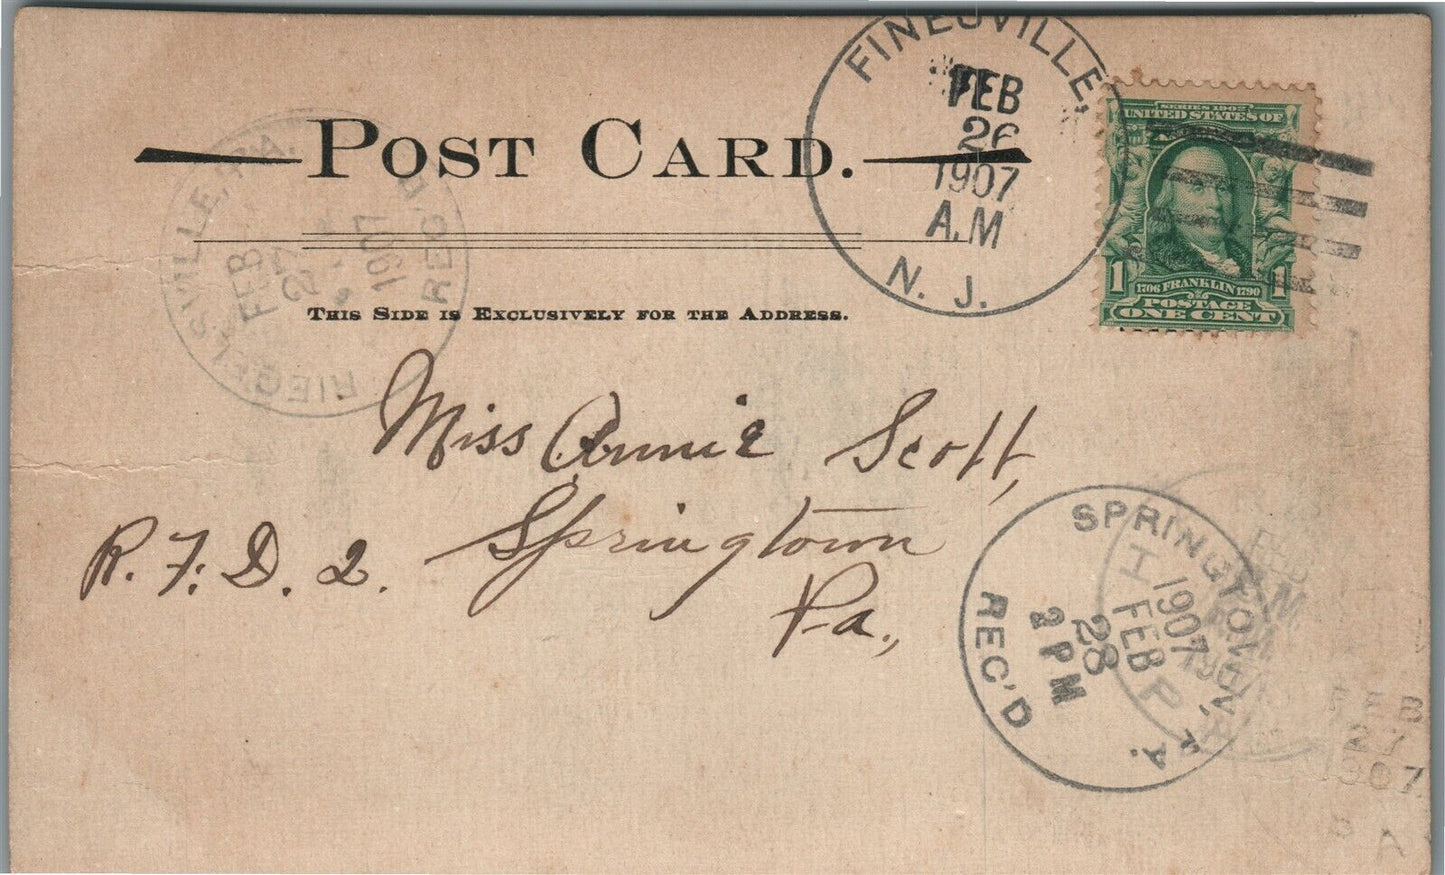 FINESVILLE,
N. J.
FEB
26
1907
A.M
SERIES 1902
UNITED STATES OF
1 1
1706 FRANKLIN 1790
POSTAGE
ONE CENT
POST CARD.
RIEGELSVILLE, PA.
FEB
27
1907
REC'D
THIS SIDE IS EXCLUSIVELY FOR THE ADDRESS.
Miss Annie Scott,
Springtown
R. F. D. 2.
Pa.,
SPRINGTOWN, PA.
1907
FEB
28
2 PM
REC'D
FEB
27
1907
PA